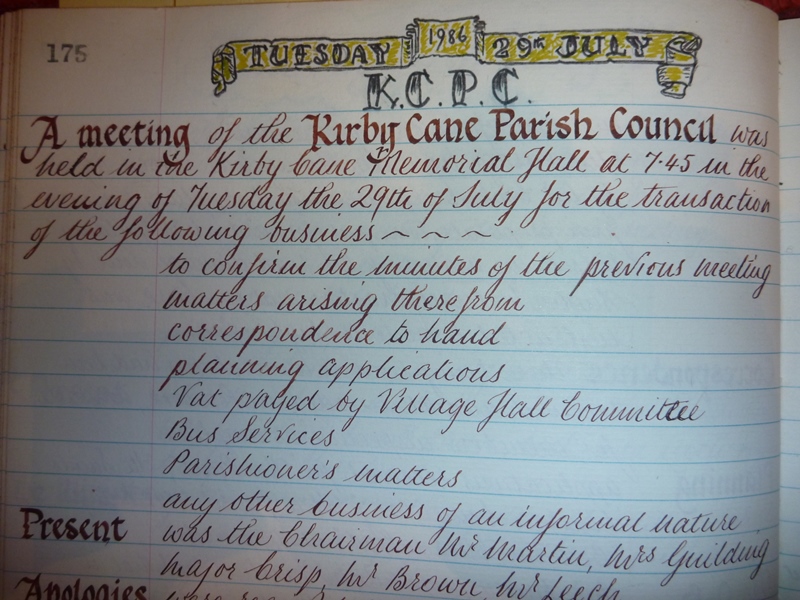 175
TUESDAY 1986 29TH JULY
K.C.P.C.
A meeting of the Kirby Cane Parish Council was
held in the Kirby Cane Memorial Hall at 7.45 in the
evening of Tuesday the 29th of July for the transaction
of the following business ~ ~ ~
to confirm the minutes of the previous meeting
matters arising therefrom
correspondence to hand
planning applications
Vat payed by Village Hall Committee
Bus Services
Parishioner's matters
any other business of an informal nature
Present was the Chairman Mr Martin, Mrs Guilding
Major Crisp, Mr Brown, Mr Leech
Apologies were